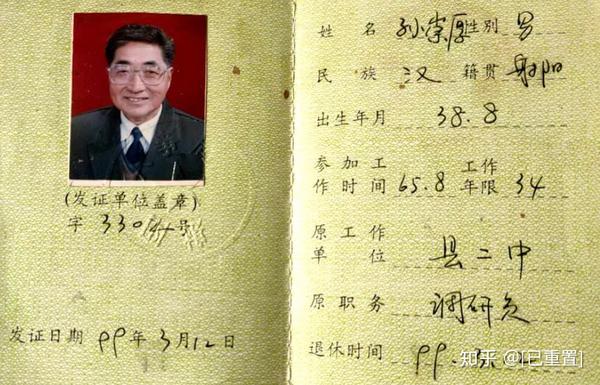 (发证单位盖章)
字 330 号
发证日期 99年3月12日
姓 名 孙崇厚 性别 男
民 族 汉 籍贯 射阳
出生年月 38.8
参加工作时间 65.8 工作年限 34
原工作单位 县二中
原职务 调研员
退休时间 99.3.
知乎 @[已重置]